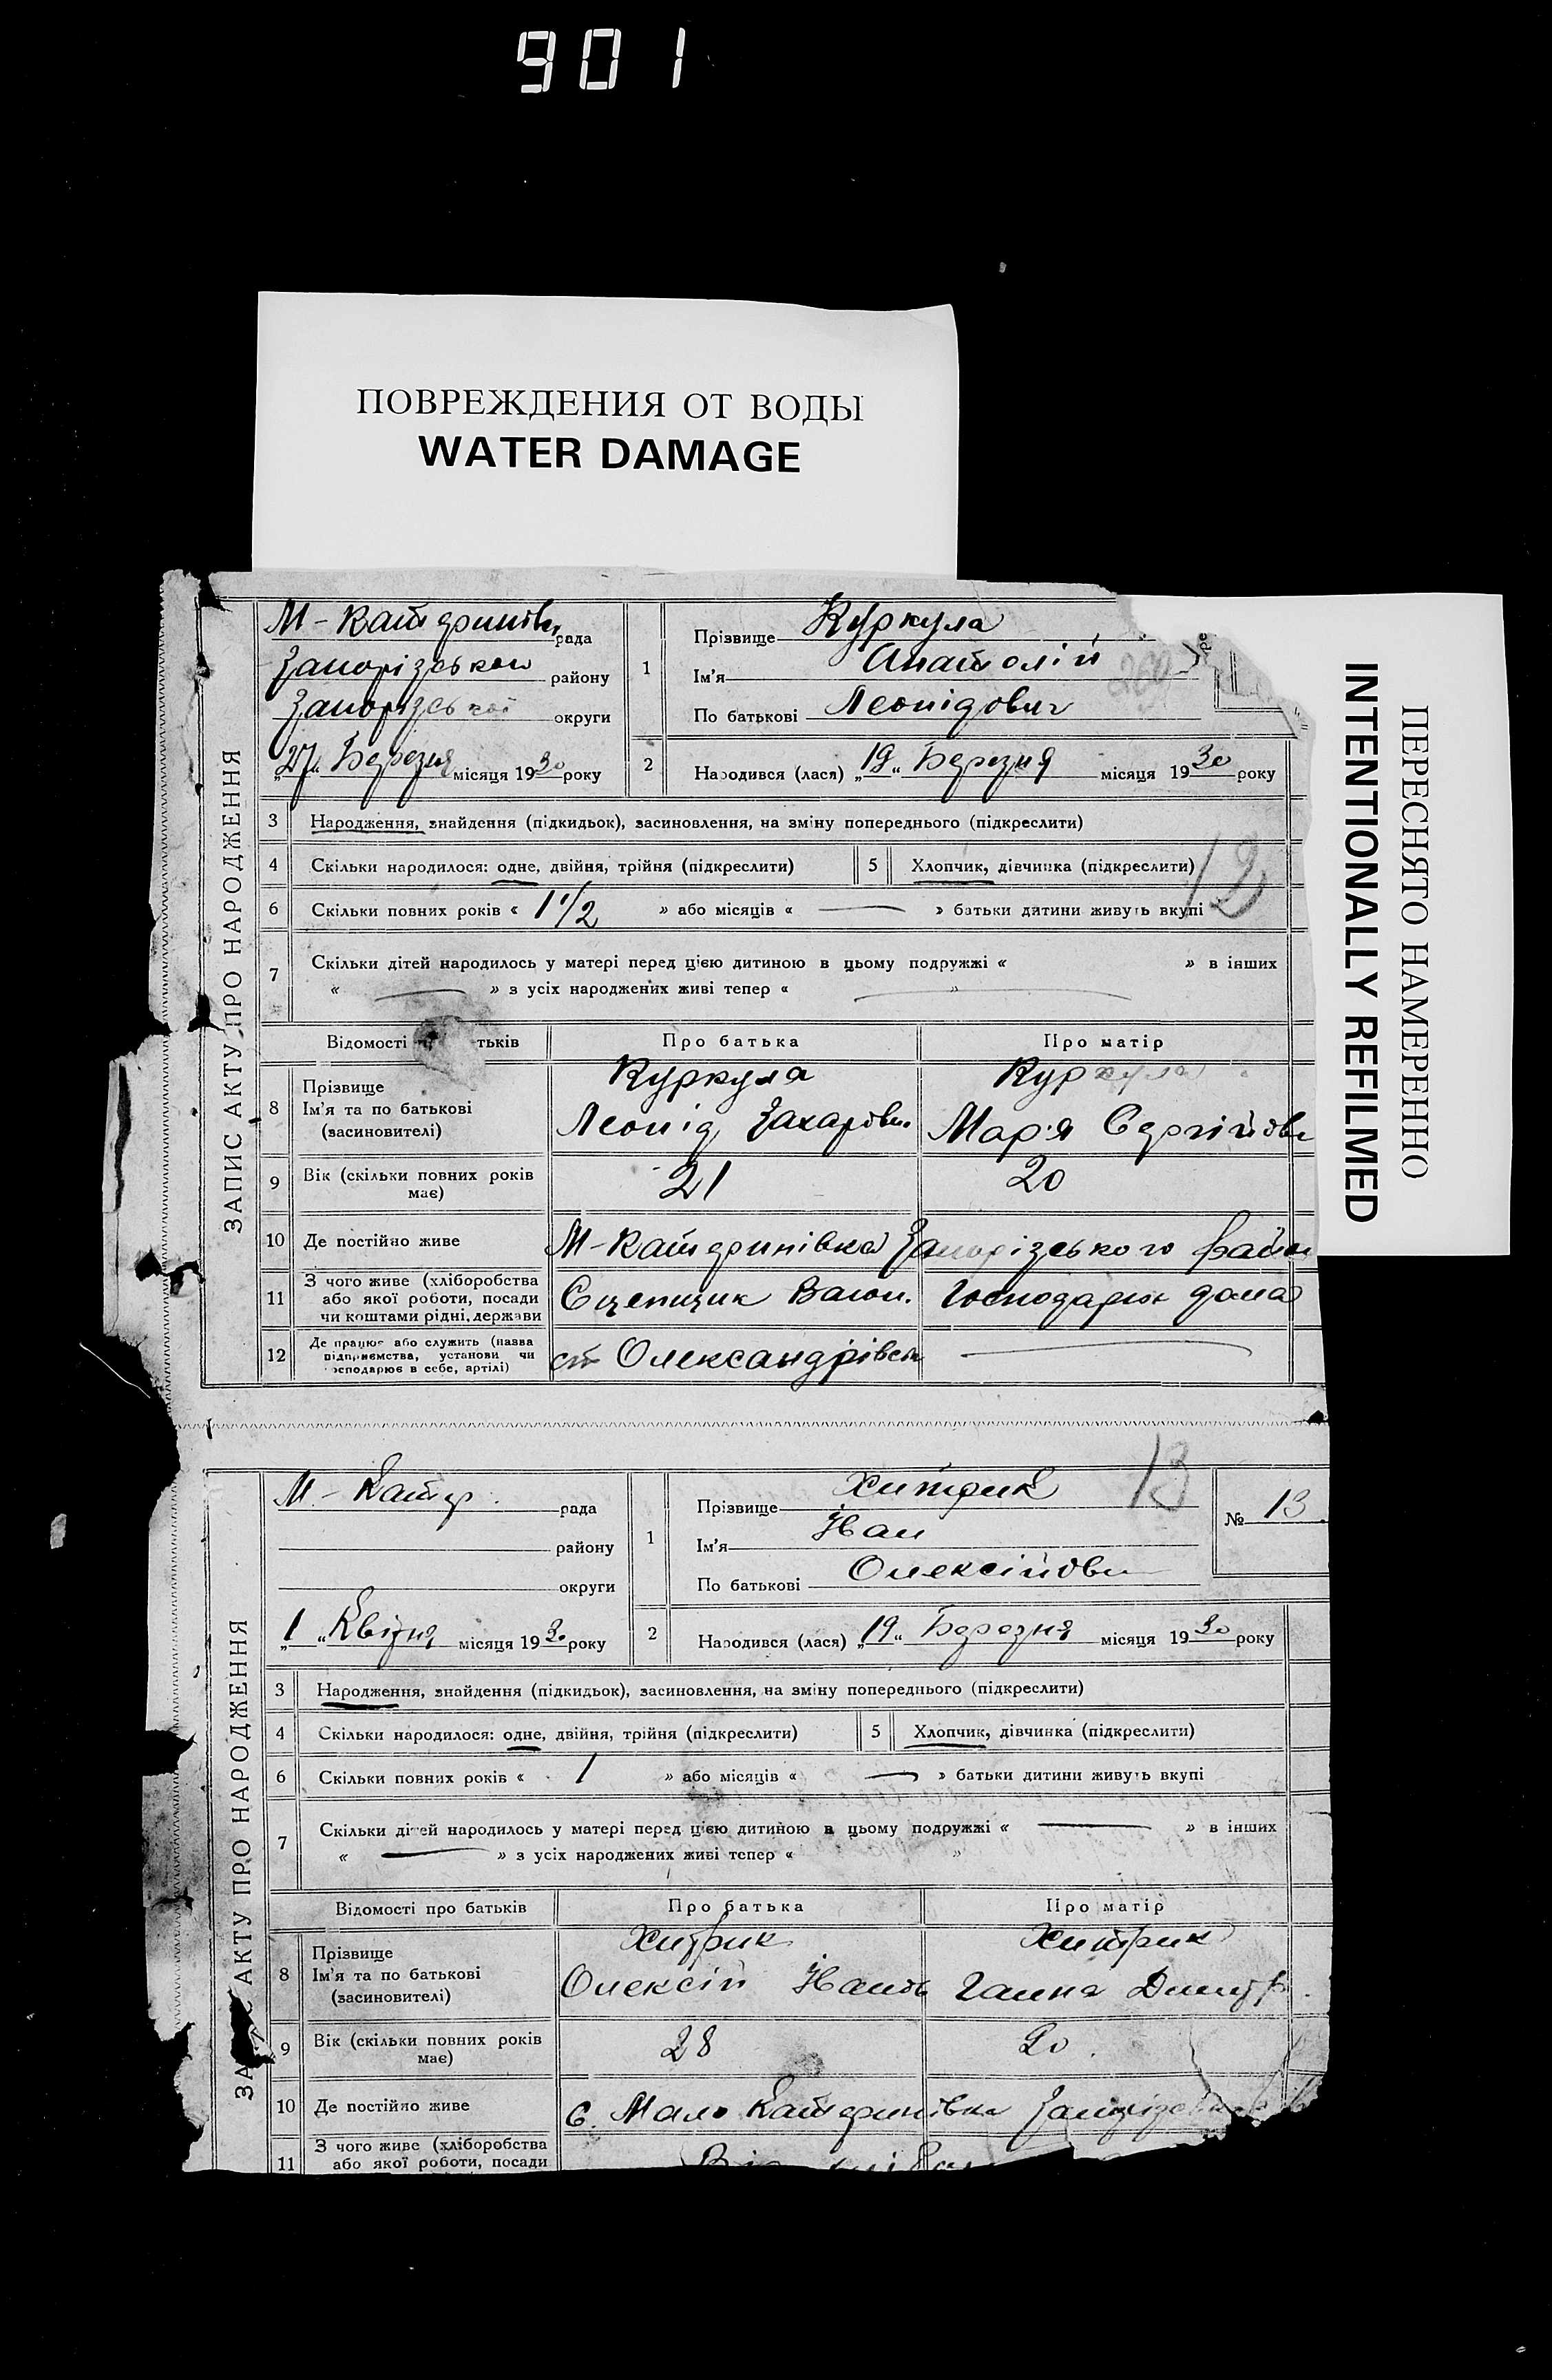 901
ПОВРЕЖДЕНИЯ ОТ ВОДЫ
WATER DAMAGE
ПЕРЕСНЯТО НАМЕРЕННО
INTENTIONALLY REFILMED
ЗАПИС АКТУ ПРО НАРОДЖЕННЯ
М-Катеринівк рада
Запорізького району
Запорізької округи
„27“ Березня місяця 1930 року
1 Прізвище Куркула
Ім'я Анатолій 269
По батькові Леонідович
2 Народився (лася) „19“ Березня місяця 1930 року
3 Народження, знайдення (підкидьок), засиновлення, на зміну попереднього (підкреслити)
4 Скільки народилося: одне, двійня, трійня (підкреслити) 5 Хлопчик, дівчинка (підкреслити) 12
6 Скільки повних років « 1 1/2 » або місяців « — » батьки дитини живуть вкупі
7 Скільки дітей народилось у матері перед цією дитиною в цьому подружжі « » в інших
« — » з усіх народжених живі тепер « — »
Відомості тьків Про батька Про матір
8 Прізвище Куркула Куркула
Ім'я та по батькові Леонід Захарович Мар'я Сергійовн
(засиновителі)
9 Вік (скільки повних років має) 21 20
10 Де постійно живе М-Катеринівка Запорізького район
11 З чого живе (хліборобства
або якої роботи, посади Сцепщик Вагон. Господарює дома
чи коштами рідні, держави
12 Де працює або служить (назва
підприємства, установи чи ст Олександрівськ —
осподарює в себе, артілі)
ЗАПИС АКТУ ПРО НАРОДЖЕННЯ
М-Катер. рада
району
округи
„1“ Квітня місяця 1930 року
1 Прізвище Хитрик 13
Ім'я Іван
По батькові Олексійови
№ 13
2 Народився (лася) „19“ Березня місяця 1930 року
3 Народження, знайдення (підкидьок), засиновлення, на зміну попереднього (підкреслити)
4 Скільки народилося: одне, двійня, трійня (підкреслити) 5 Хлопчик, дівчинка (підкреслити)
6 Скільки повних років « 1 » або місяців « — » батьки дитини живуть вкупі
7 Скільки дітей народилось у матері перед цією дитиною в цьому подружжі « — » в інших
« — » з усіх народжених живі тепер « »
Відомості про батьків Про батька Про матір
8 Прізвище Хитрик Хитрик
Ім'я та по батькові Олексій Іванов Ганна Дмитр.
(засиновителі)
9 Вік (скільки повних років має) 28 20.
10 Де постійно живе с. Мало Катеринівка
11 З чого живе (хліборобства
або якої роботи, посади